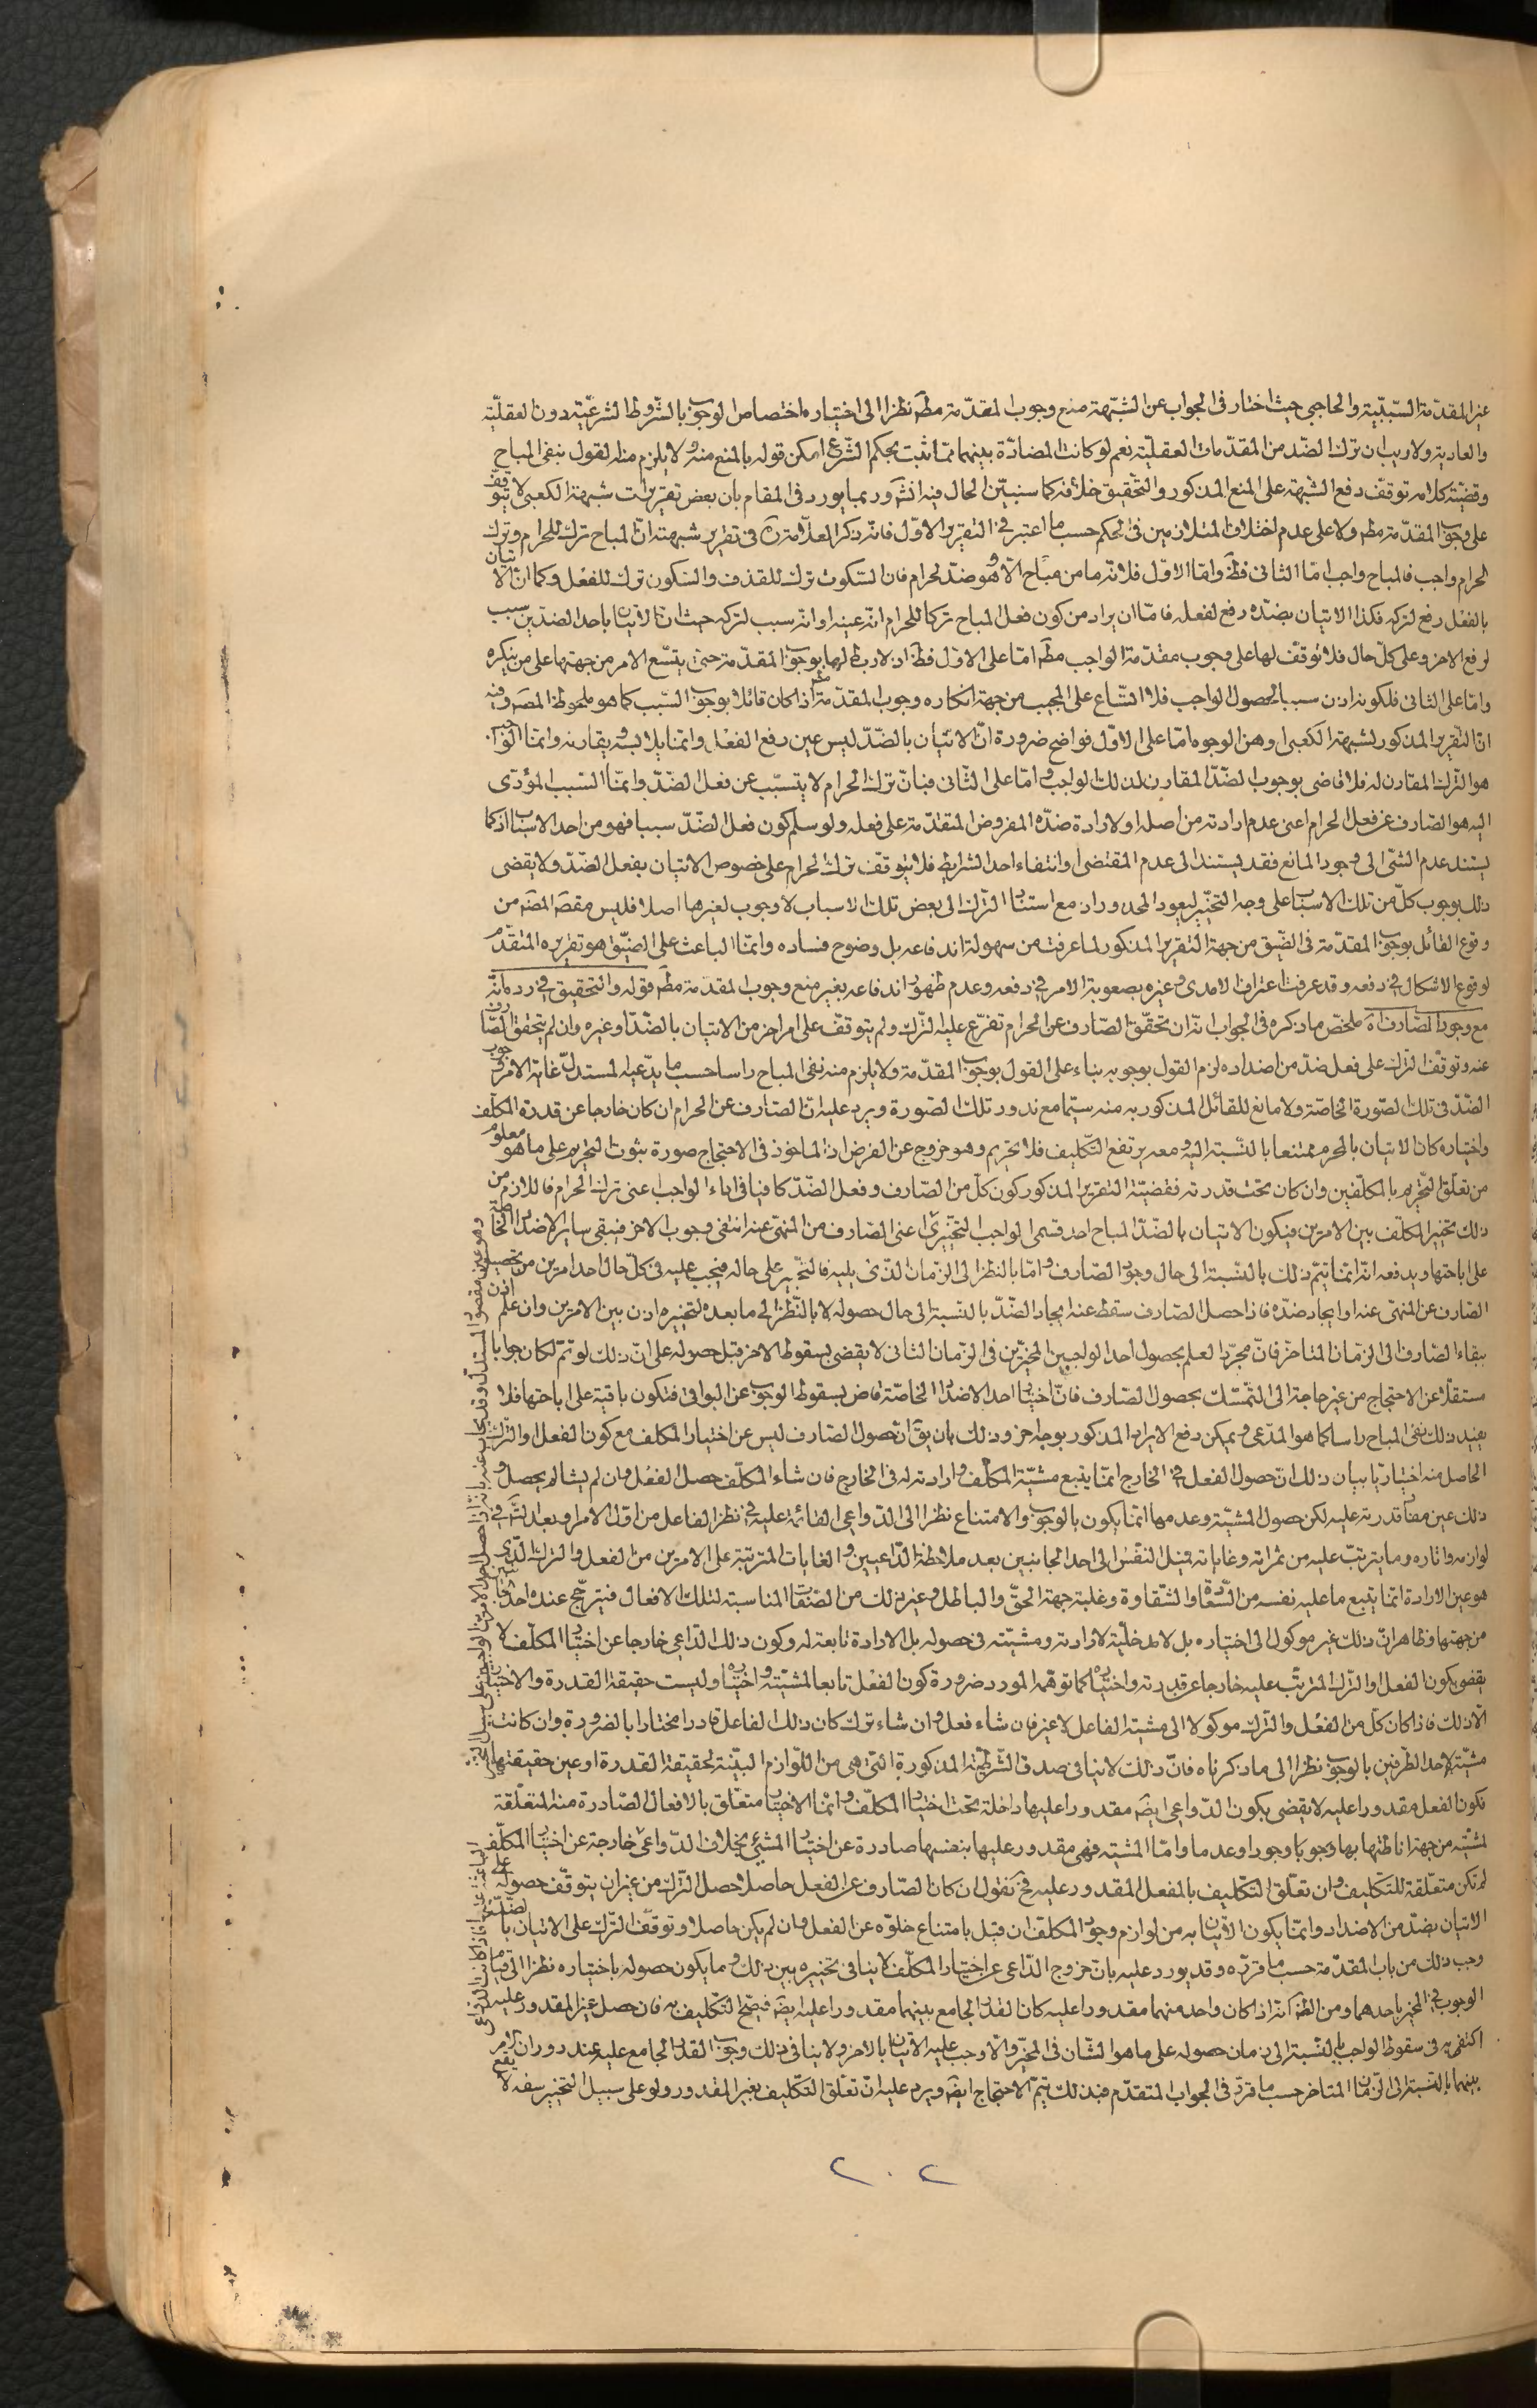 غير المقدّمة السّببيّة والحاجبي حيث اختار في الجواب عن الشّبهة منع وجوب المقدّمة مطم نظرا الى اختياره اختصاص الوجوب بالشّروط الشرعيّة دون العقليّة
والعادية ولا ريب ان ترك الضّد من المقدّمات العقليّة نعم لو كانت المضادّة بينهما ممّا يثبت بحكم الشّرع امكن قوله بالمنع منه ولا يلزم منه القول بنفي المباح
وقضيّة كلامه توقّف دفع الشّبهة على المنع المذكور والتّحقيق خلافه كما سنبيّن الحال فيه انش وربما يورد في المقام بان بعض تقريرات شبهة الكعبي لا يتوقّف
على وجوب المقدّمة مطم ولا على عدم اختلاف المتلازمين في الحكم حسب ما اعتبر في التقرير الاوّل فانّه ذكر العلّامة ره في تقرير شبهته انّ المباح ترك للحرام وترك
الحرام واجب فالمباح واجب امّا الثاني فظ وامّا الاوّل فلانّه ما من مباح الّا وهو ضدّ لحرام فان السّكوت ترك للقذف والسّكون ترك للفعل وكما انّ الاتيان
بالفعل رفع لتركه فكذا الاتيان بضدّه رفع لفعله فامّا ان يراد من كون فعل المباح تركا للحرام انّه عينه او انّه سبب لتركه حيث ان الاتيان باحد الضدّين سبب
لرفع الاخر وعلى كلّ حال فلا توقّف لها على وجوب مقدّمة الواجب مطم امّا على الاوّل فظ اذ لا ربط لها بوجوب المقدّمة حتى يتّسع الامر من جهتها على من ينكره
وامّا على الثاني فلكونه اذن سببا لحصول الواجب فلا اتّساع على المجيب من جهة انكاره وجوب المقدّمة مطم اذا كان قائلا بوجوب السّبب كما هو ملحوظ المصم وفيه
انّ التّقرير المذكور لشبهة الكعبي اوهن الوجوه امّا على الاوّل فواضح ضرورة انّ الاتيان بالضدّ ليس عين رفع الفعل وانّما يلابسه ويقارنه وانّما الواجب
هو التّرك المقارن له فلا قاضي بوجوب الضّدّ المقارن لذلك الواجب وامّا على الثّاني فبانّ ترك الحرام لا يتسبّب عن فعل الضّدّ وانّما السّبب المؤدّي
اليه هو الصّارف عن فعل الحرام اعني عدم ارادته من اصله او لارادة ضدّه المفروض المتقدّمة على فعله ولو سلّم كون فعل الضّدّ سببا فهو من احد الاسباب اذ كما
يستند عدم الشّيء الى وجود المانع فقد يستند الى عدم المقتضي او انتفاء احد الشرايط فلا يتوقّف ترك الحرام على خصوص الاتيان بفعل الضّدّ ولا يقضي
ذلك بوجوب كلّ من تلك الاسباب على وجه التخيير ليعود المحذور اذ مع استناد التّرك الى بعض تلك الاسباب لا وجوب لغيرها اصلا فليس مقصم المصم من
وقوع القائل بوجوب المقدّمة في الضّيق من جهة التقرير المذكور لما عرفت من سهولة اندفاعه بل وضوح فساده وانّما الباعث على الضّيق هو تقريره المتقدّم
لوقوع الاشكال في دفعه وقد عرفت اعتراف الامدي وغيره بصعوبة الامر في دفعه وعدم ظهور اندفاعه بغير منع وجوب المقدّمة مطم قوله والتحقيق في رده انّه
مع وجود الصّارف اه ملخص ما ذكره في الجواب انّه ان تحقّق الصّارف عن الحرام تفرّع عليه التّرك ولم يتوقّف على امر اخر من الاتيان بالضّدّ او غيره وان لم يتحقّق الصّارف
عنه وتوقف التّرك على فعل ضدّ من اضداده لزم القول بوجوبه بناء على القول بوجوب المقدّمة ولا يلزم منه نفي المباح راسا حسب ما يدّعيه المستدلّ غاية الامر وجوب
الضّدّ في تلك الصّورة الخاصّة ولا مانع للقائل المذكور به منه سيّما مع ندور تلك الصّورة ويرد عليه انّ الصّارف عن الحرام ان كان خارجا عن قدرة المكلّف
واختياره كان الاتيان بالمحرم ممتنعا بالنّسبة اليه ومعه يرتفع التّكليف فلا تحريم وهو خروج عن الفرض اذ الماخوذ في الاحتجاج صورة ثبوت التحريم على ما هو معلوم
من تعلّق التّحريم بالمكلّفين وان كان تحت قدرته فقضيّة التقرير المذكور كون كلّ من الصّارف وفعل الضّدّ كافيا في اداء الواجب اعني ترك الحرام فاللازم من
ذلك تخيير المكلّف بين الامرين فيكون الاتيان بالضّدّ المباح احد قسمي الواجب التّخييري اعني الصّارف من المنهيّ عنه انتفى وجوب الاخر فيبقى ساير الاضداد الخاصّة
على اباحتها ويدفعه انّه انّما يتمّ ذلك بالنّسبة الى حال وجود الصّارف وامّا بالنظر الى الزّمان الذّي يليه فالتخيير على حاله فيجب عليه في كلّ حال احد امرين من تحصيل
الصّارف عن المنهيّ عنه او ايجاد ضدّه فاذا حصل الصّارف سقط عنه ايجاد الضّدّ بالنّسبة الى حال حصوله لا بالنّظر الى ما بعده لتخييره اذن بين الامرين وان علم اذن
ببقاء الصّارف الى الزّمان المتاخّر فانّ مجرّد العلم بحصول احد الواجبين المخيّرين في الزّمان الثاني لا يقضي بسقوط الاخر قبل حصوله على انّ ذلك لو تمّ لكان جوابا
مستقلّا عن الاحتجاج من غير حاجة الى التّمسّك بحصول الصّارف فانّ اختيار احد الاضداد الخاصّة قاض بسقوط الوجوب عن البواقي فتكون باقية على اباحتها فلا
يفيد ذلك نفي المباح راسا كما هو المدّعى ويمكن دفع الايراد المذكور بوجه اخر وذلك بان يق انّ حصول الصّارف ليس عن اختيار المكلف مع كون الفعل والتّرك
الحاصل منه اختياريّا بيان ذلك انّ حصول الفعل في الخارج انّما يتبع مشيّة المكلّف وارادته له في الخارج فان شاء المكلّف حصل الفعل وان لم يشا لم يحصل و
ذلك عين مفاد قدرته عليه لكن حصول المشيّة وعدمها انّما يكون بالوجوب والامتناع نظرا الى الدّواعي القائمة عليه في نظر الفاعل من اوّل الامر او بعد التّامل في
لوازمه واثاره وما يترتّب عليه من ثمراته وغاياته فميل النّفس الى احد الجانبين بعد ملاحظة الدّاعيين والغايات المترتبة على الامرين من الفعل والترك الذي
هو عين الارادة انّما يتبع ما عليه نفسه من السّعادة والشّقاوة وغلبة جهة الحقّ والباطل وغير ذلك من الصّفات المناسبة لتلك الافعال فيترجّح عنده احدهما
من جهتها وظاهر انّ ذلك غير موكول الى اختياره بل لا مدخليّة لارادته ومشيّته في حصوله بل الارادة تابعة له وكون ذلك الدّاعي خارجا عن اختيار المكلّف لا
يقضي بكون الفعل او التّرك المترتّب عليه خارجا عن قدرته واختياره كما توهّمه المورد ضرورة كون الفعل تابعا لمشيّته واختياره وليست حقيقة القدرة والاختيار
الّا ذلك فاذا كان كلّ من الفعل والتّرك موكولا الى مشيّة الفاعل لا غير فان شاء فعل وان شاء ترك كان ذلك الفاعل قادرا مختارا بالضّرورة وان كانت
مشيّة لاحد الطّرفين بالوجوب نظرا الى ما ذكرناه فانّ ذلك لا ينافي صدق الشّرطيّة المذكورة الّتي هي من اللّوازم البيّنة لحقيقة القدرة او عين حقيقتها
فكون الفعل مقدورا عليه لا يقضي بكون الدّواعي ايضم مقدورا عليها داخلة تحت اختيار المكلّف وانّما الاختيار متعلّق بالافعال الصّادرة منه المتعلّقة
لمشيّته من جهة اناطتها بها وجوبا ووجودا وعدما وامّا المشيّة فهي مقدور عليها بنفسها صادرة عن اختيار المشيّء بخلاف الدّواعي خارجة عن اختيار المكلّف
لم تكن متعلّقة للتّكليف وان تعلّق التّكليف بالفعل المقدور عليه فح نقول ان كان الصّارف عن الفعل حاصلا حصل التّرك من غير ان يتوقّف حصوله على
الاتيان بضدّ من الاضداد وانّما يكون الاتيان به من لوازم وجود المكلّف ان قيل بامتناع خلوّه عن الفعل وان لم يكن حاصلا وتوقّف التّرك على الاتيان بالضّدّ
وجب ذلك من باب المقدّمة حسب ما قرّره وقد يورد عليه بانّ خروج الدّاعي عن اختيار المكلّف لا ينافي تخييره بين ذلك وما يكون حصوله باختياره نظرا الى قيام
الوجوب في المخيّر باحدهما ومن الظم انّه اذا كان واحد منهما مقدورا عليه كان القدر الجامع بينهما مقدورا عليه ايضم فيصحّ التّكليف به فان حصل غير المقدور عليه
اكتفي به في سقوط الواجب بالنّسبة الى زمان حصوله على ما هو الشّان في المخيّر والّا وجب عليه الاتيان بالاخر ولا ينافي ذلك وجوب القدر الجامع عليه عند دوران الامر
بينهما بالنّسبة الى الزّمان المتاخر حسب ما قرّر في الجواب المتقدّم فبذلك يتمّ الاحتجاج ايضم ويرد عليه انّ تعلّق التّكليف بغير المقدور ولو على سبيل التخيير سفه لا يقع
٢٠٢